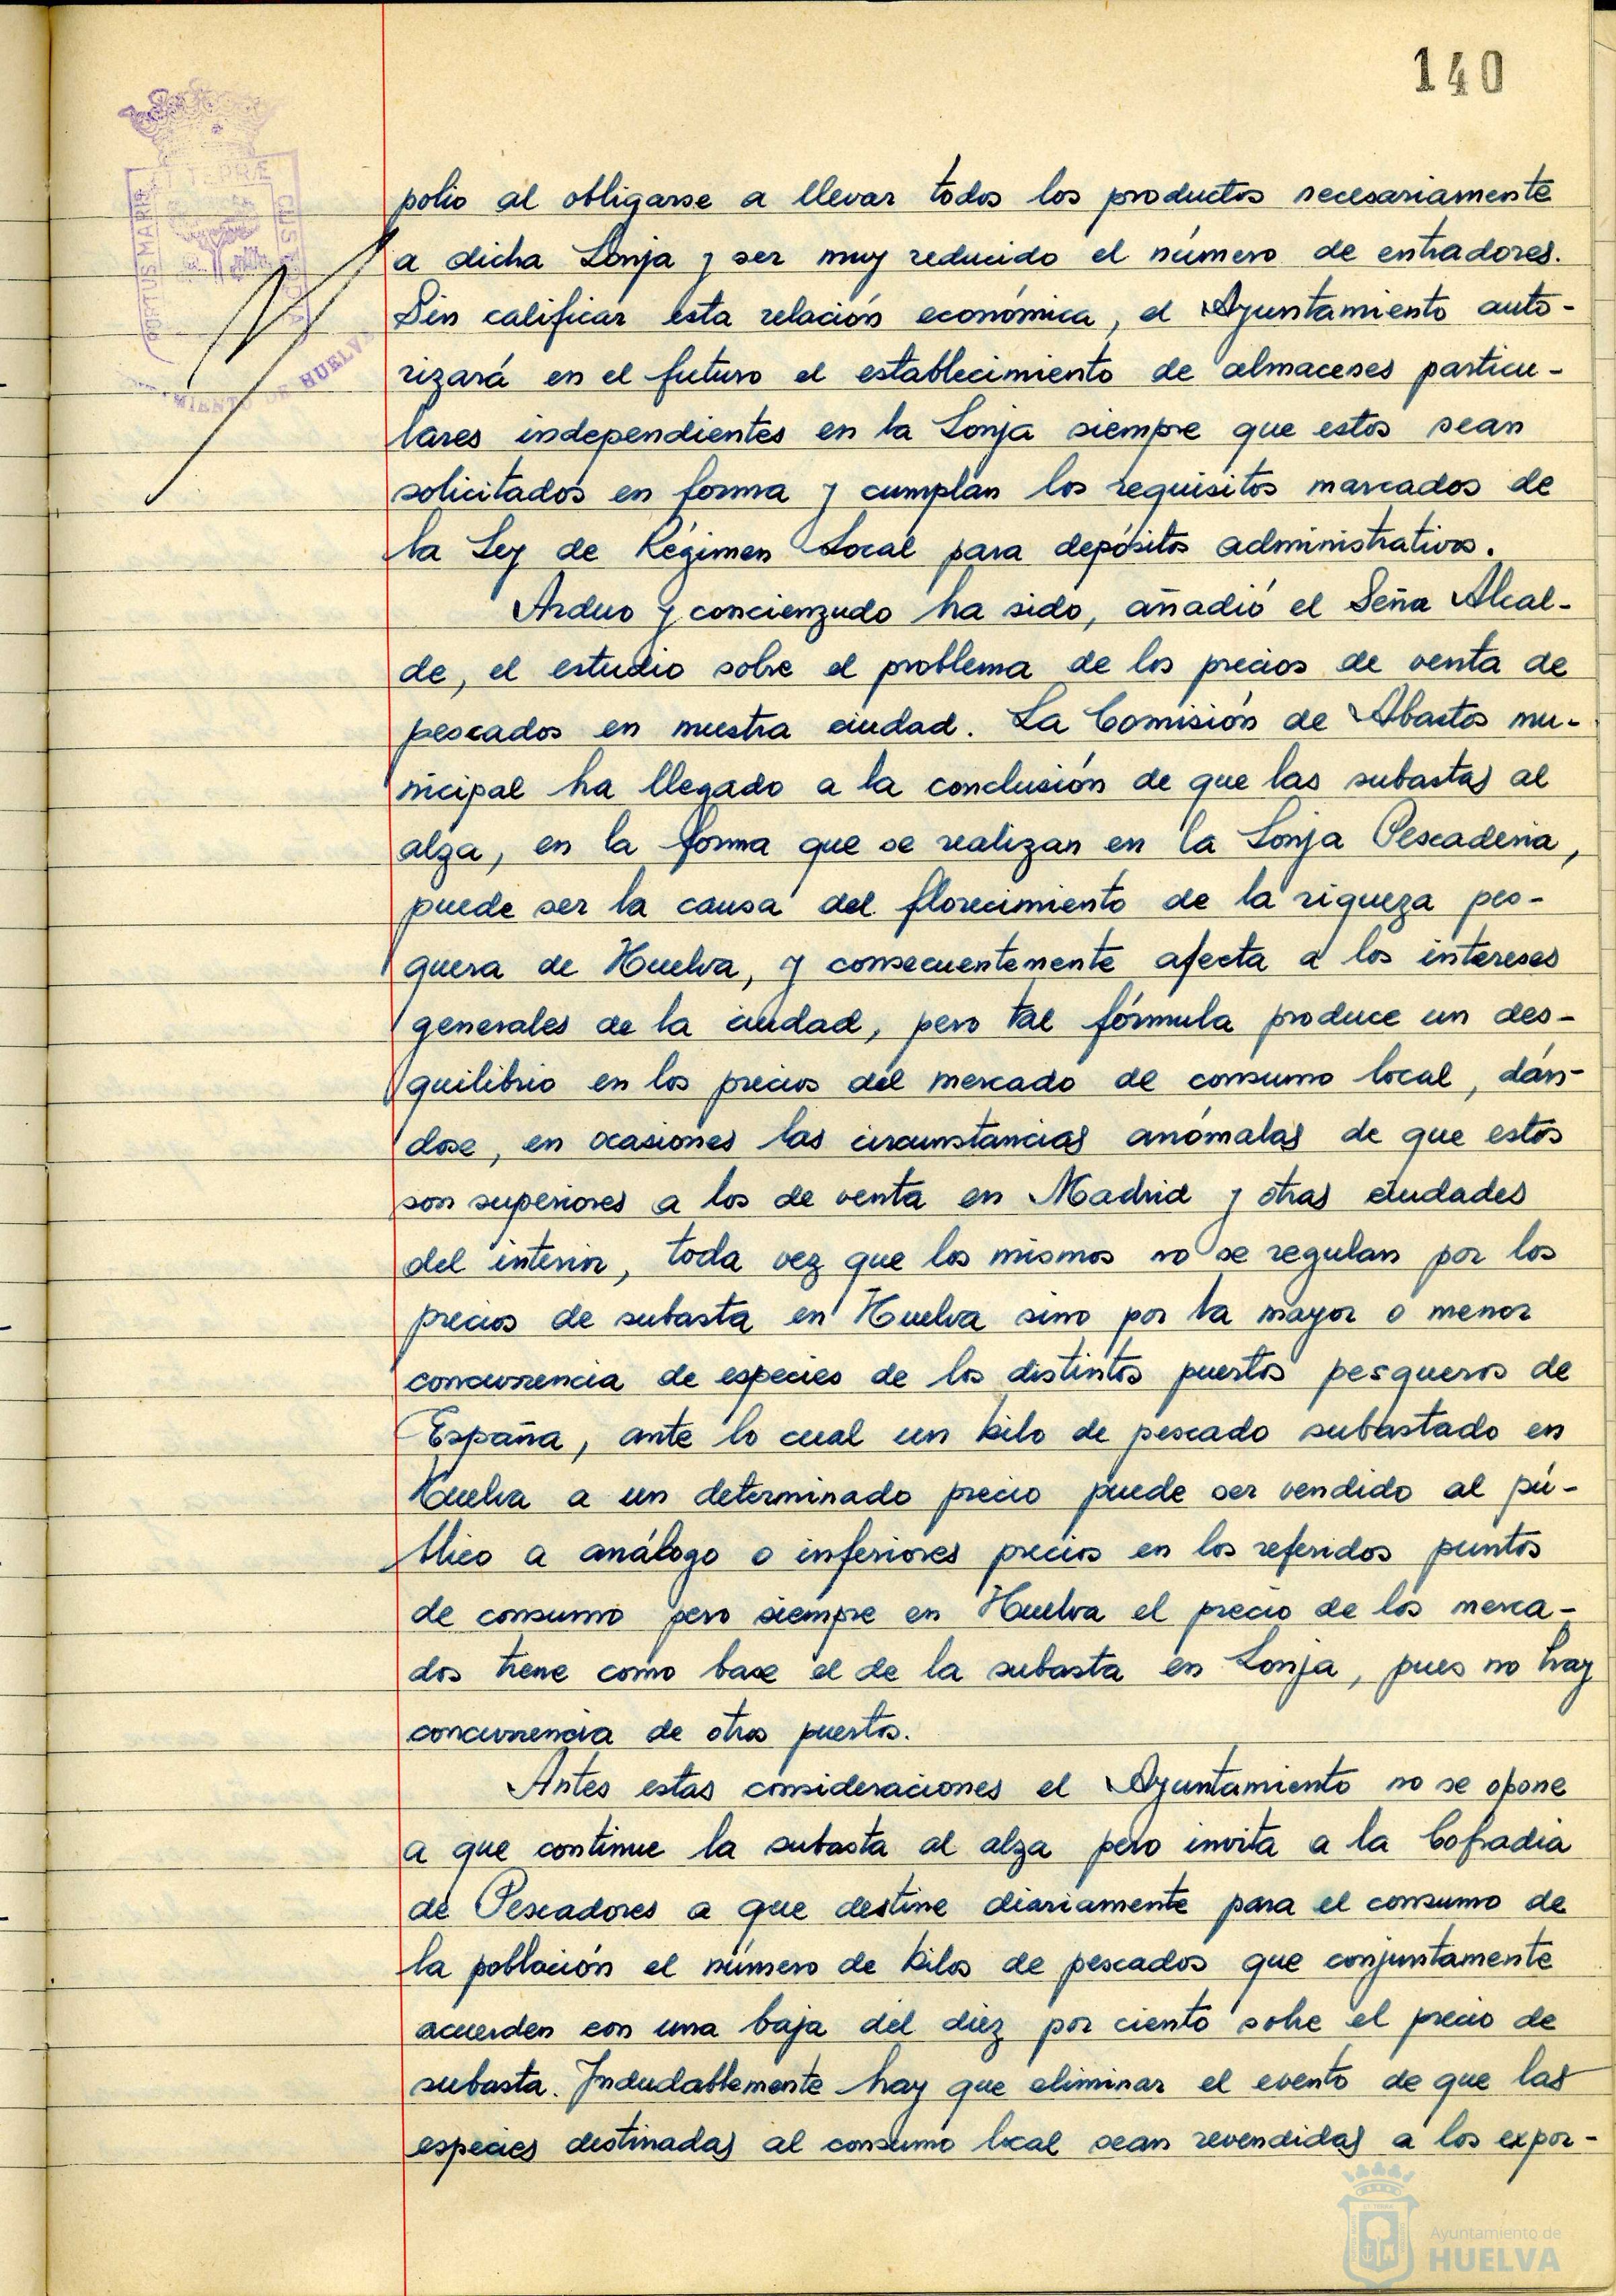 140
ET TERRÆ
PORTUS MARIS
CUSTODIA
MIENTO DE HUELVA
polio al obligarse a llevar todos los productos necesariamente
a dicha Lonja y ser muy reducido el número de entradores.
Sin calificar esta relación económica, el Ayuntamiento auto-
rizará en el futuro el establecimiento de almacenes particu-
lares independientes en la Lonja siempre que estos sean
solicitados en forma y cumplan los requisitos marcados de
la Ley de Régimen Local para depósitos administrativos.
Arduo y concienzudo ha sido, añadió el Señor Alcal-
de, el estudio sobre el problema de los precios de venta de
pescados en nuestra ciudad. La Comisión de Abastos mu-
nicipal ha llegado a la conclusión de que las subastas al
alza, en la forma que se realizan en la Lonja Pescaderia,
puede ser la causa del florecimiento de la riqueza pes-
quera de Huelva, y consecuentemente afecta a los intereses
generales de la ciudad, pero tal fórmula produce un des-
quilibrio en los precios del mercado de consumo local, dán-
dose, en ocasiones las circunstancias anómalas de que estos
son superiores a los de venta en Madrid y otras ciudades
del interior, toda vez que los mismos no se regulan por los
precios de subasta en Huelva sino por la mayor o menor
concurrencia de especies de los distintos puertos pesqueros de
España, ante lo cual un kilo de pescado subastado en
Huelva a un determinado precio puede ser vendido al pú-
blico a análogo o inferiores precios en los referidos puntos
de consumo pero siempre en Huelva el precio de los merca-
dos tiene como base el de la subasta en Lonja, pues no hay
concurrencia de otros puertos.
Antes estas consideraciones el Ayuntamiento no se opone
a que continue la subasta al alza pero invita a la Cofradia
de Pescadores a que destine diariamente para el consumo de
la población el número de kilos de pescados que conjuntamente
acuerden con una baja del diez por ciento sobre el precio de
subasta. Indudablemente hay que eliminar el evento de que las
especies destinadas al consumo local sean revendidas a los expor-
Ayuntamiento de
HUELVA